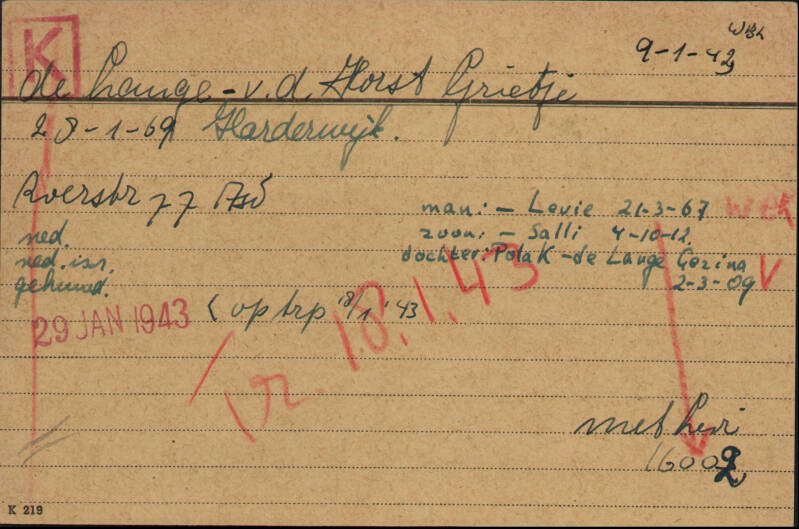 K
WBK
9-1-43
de Lange - v.d. Horst Grietje
28-1-69 Harderwijk.
Roerstr 77 Asd
man: - Levie 21-3-67
zoon: - Salli 4-10-12
dochter: Polak - de Lange Gezina V
2-3-09
ned.
ned. isr.
gehuwd.
29 JAN 1943 < op trp 18/1 '43
Tr. 18.1.43
met
16002
K 219